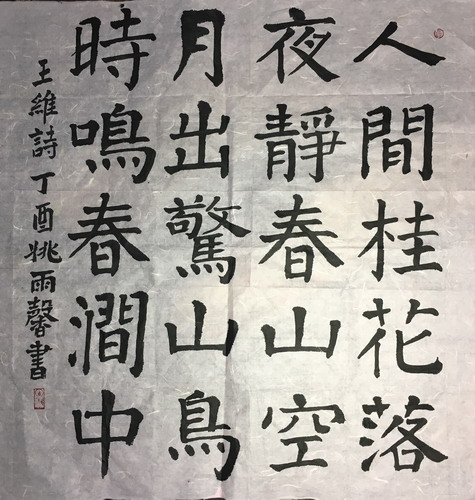 人間桂花落
夜靜春山空
月出驚山鳥
時鳴春澗中
王維詩丁酉姚雨馨書